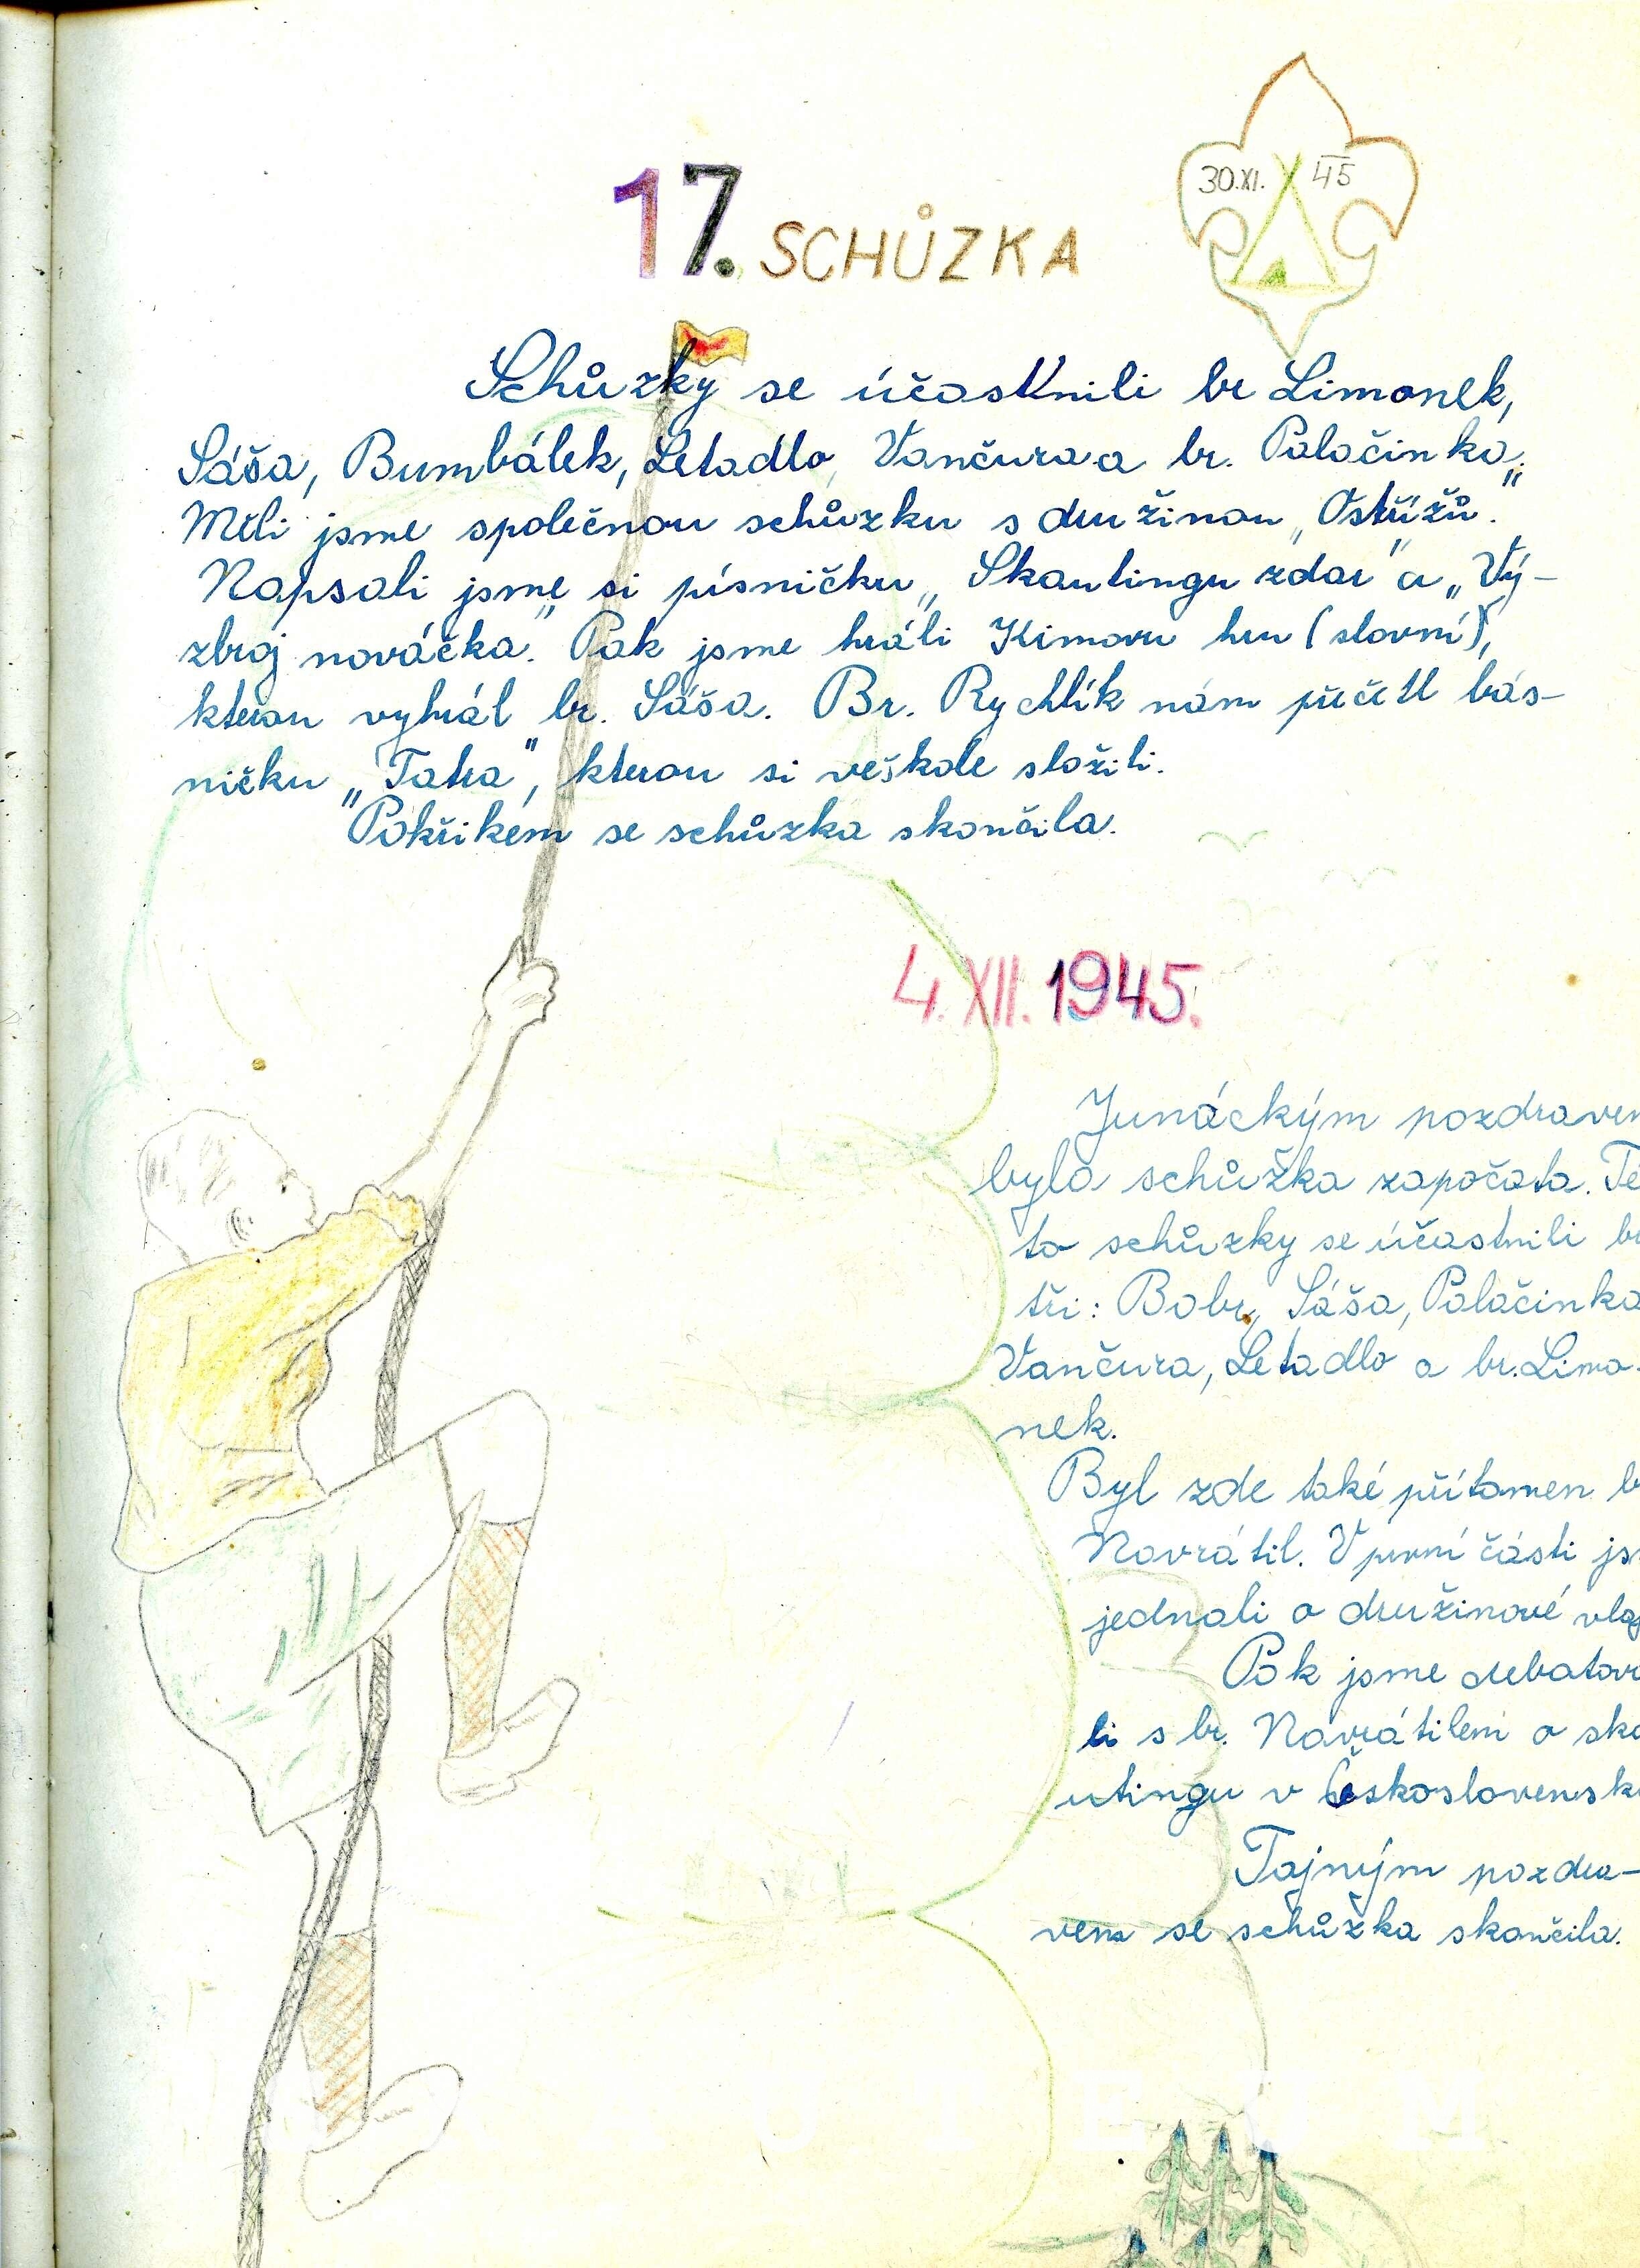 17. SCHŮZKA
30.XI. 45
Schůzky se účastnili br Limonek,
Sáša, Bumbálek, Letadlo, Vančura a br. Palačinka.
Měli jsme společnou schůzku s družinou „Ostřížů".
Napsali jsme si písničku „Skautingu zdar" a „Vý-
zbroj nováčka." Pak jsme hráli Kimovu hru (slovní),
kterou vyhrál br. Sáša. Br. Rychlík nám přečetl bás-
ničku „Tatra", kterou si veškole složili.
Pokřikem se schůzka skončila.
4. XII. 1945.
Junáckým pozdravem
byla schůzka započata. Té
to schůzky se účastnili br
tři: Bobr, Sáša, Palačinka
Vančura, Letadlo a br. Limo-
nek.
Byl zde také přítomen b
Navrátil. V první části js
jednali o družinové vlaj
Pak jsme debatova
li s br. Navrátilem o ska
utingu v Československ
Tajným pozdra-
vem se schůzka skončila.